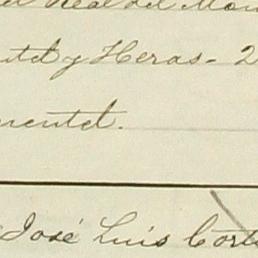 Real del Mon
y Heras - 2
mentel.
José Luis Cort